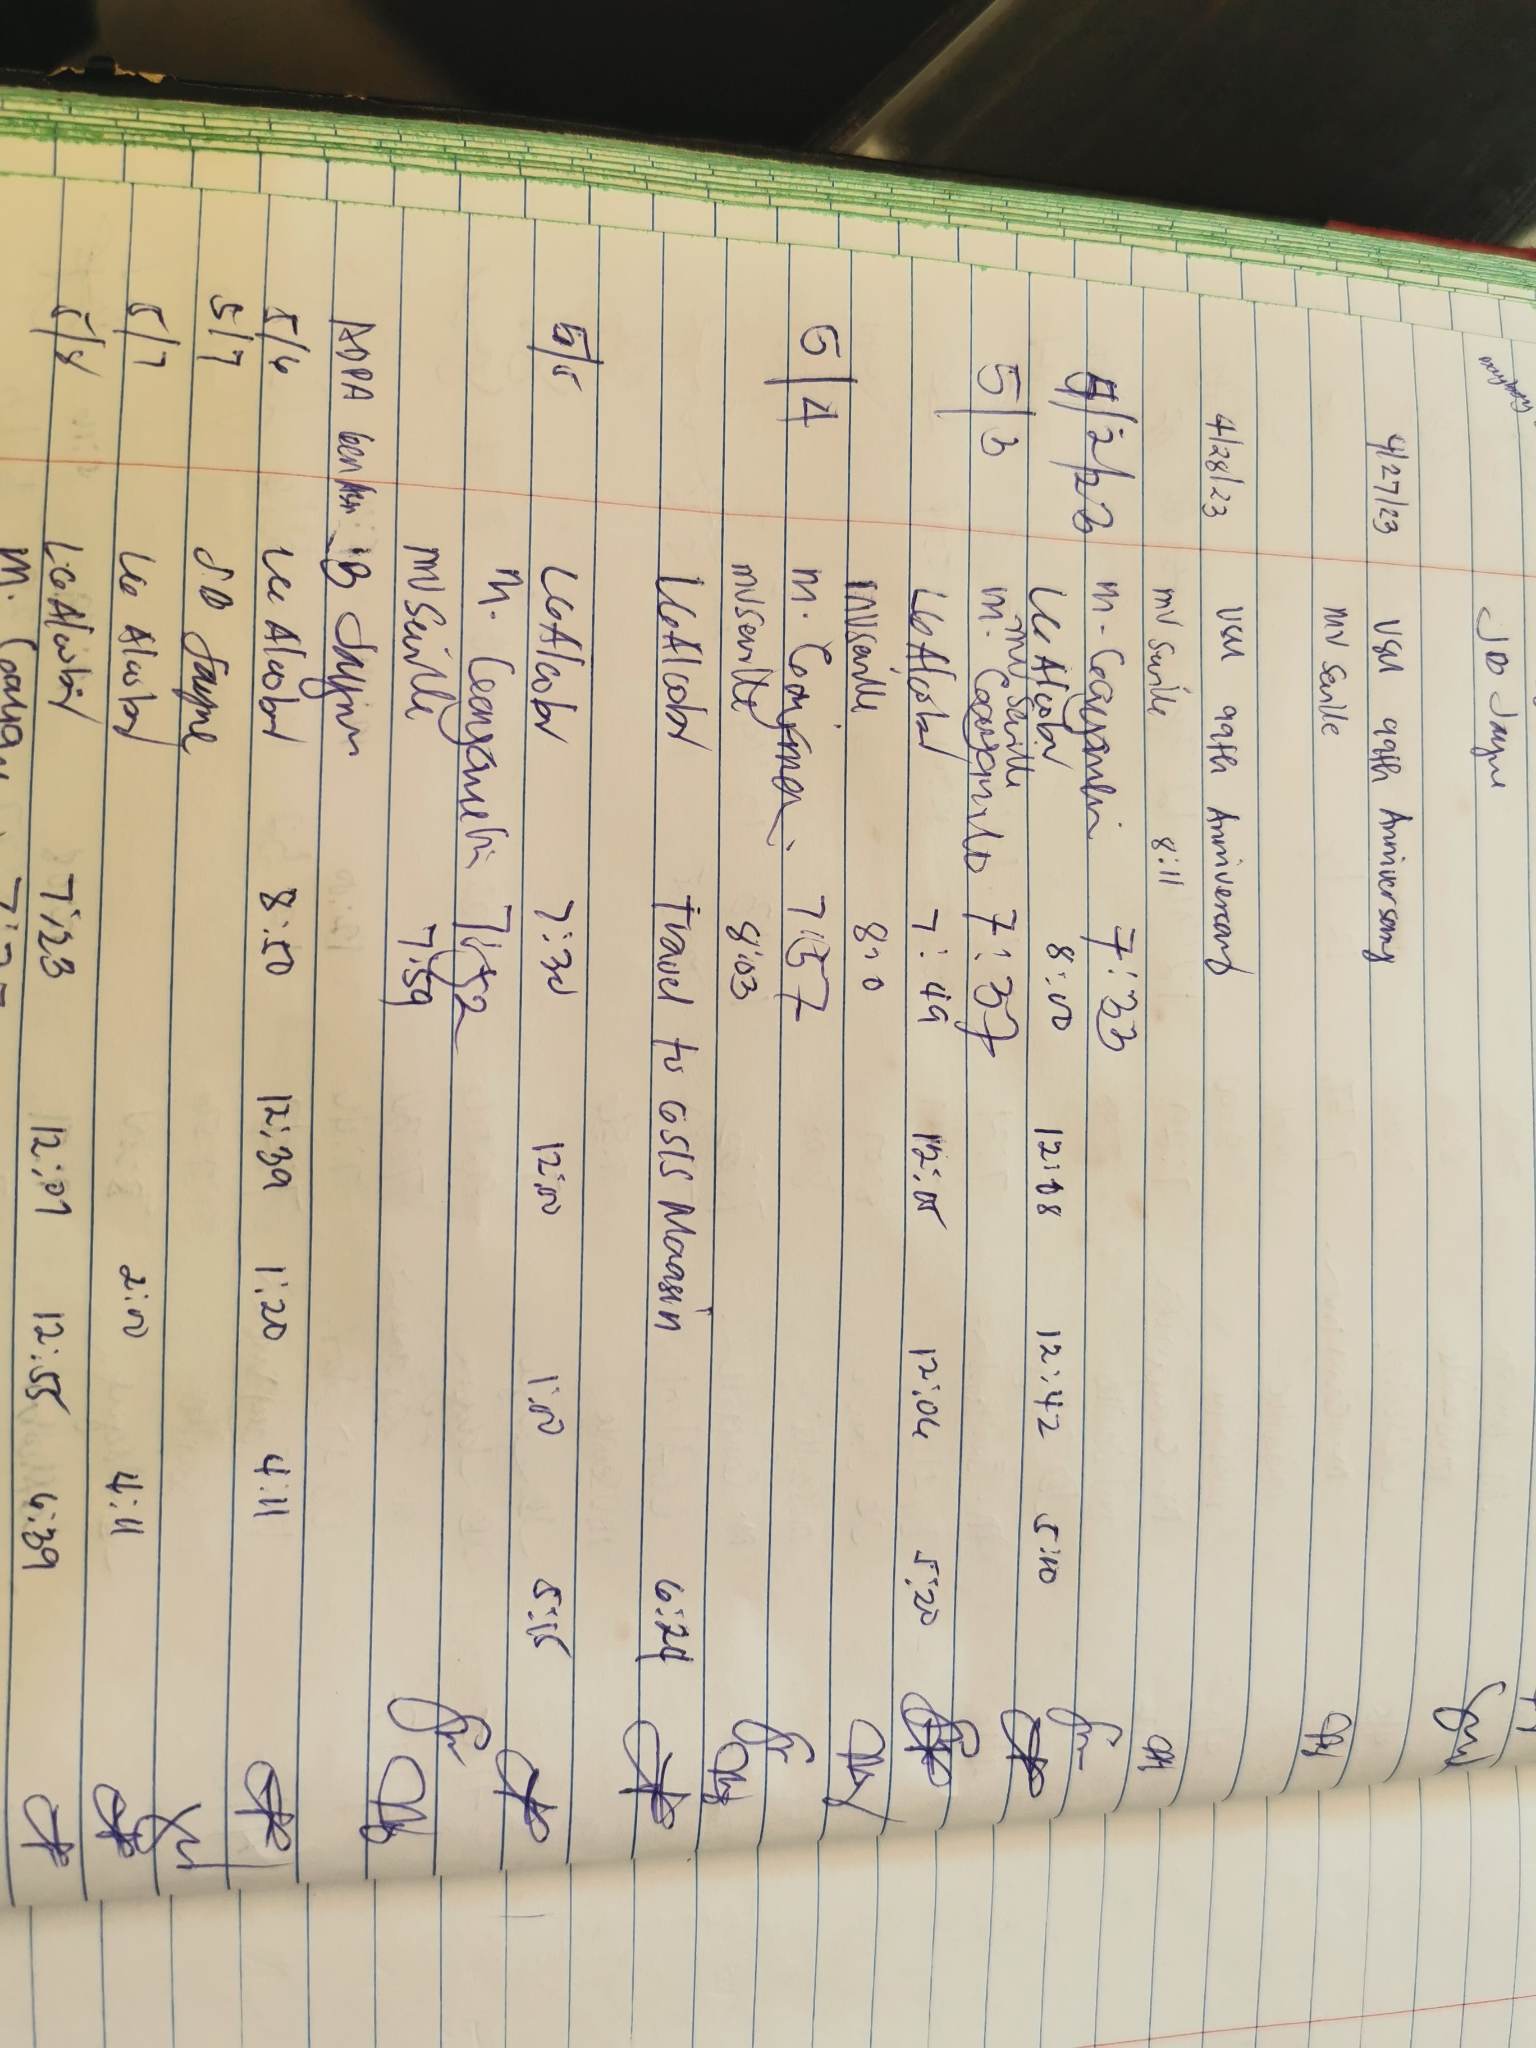 JD Jayne
4/27/23 VSU 99th Anniversary
MV Seville
4/28/23 VSU 99th Anniversary
MV Seville 8:11
5/2/23 M. 7:33
LG Alcober 8:00 12:08 12:42 5:10
MV Seville
5/3 M. 7:37
LG Alcober 7:49 12:05 12:06 5:20
MV Seville 8:10
5/4 M. 7:57
MV Seville 8:03
LG Alcober Travel to GSIS Maasin 6:24
5/5 LG Alcober 7:30 12:00 1:00 5:15
M. 7:52
MV Seville 7:59
JB
5/6 LG Alcober 8:50 12:39 1:20 4:11
5/7 JD Jayne
5/7 LG Alcober 2:00 4:11
5/8 LG Alcober 7:23 12:09 12:55 6:39
M.